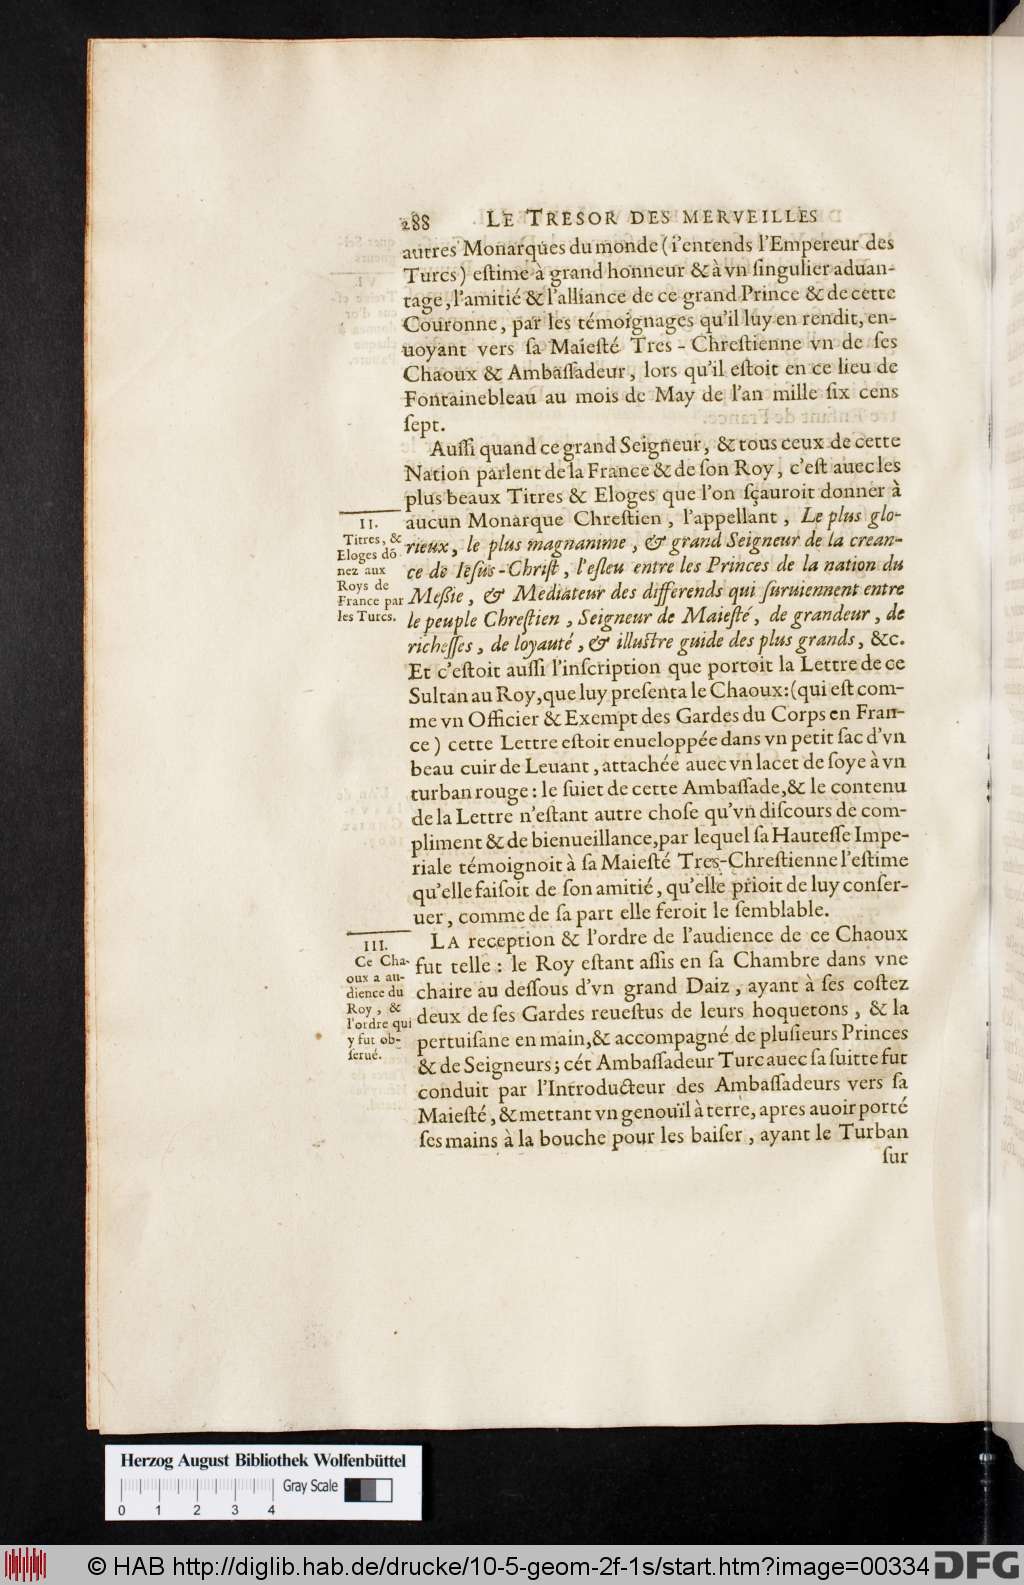 288 LE TRESOR DES MERVEILLES
autres Monarques du monde (i'entends l'Empereur des
Turcs) eſtime à grand honneur & à vn ſingulier aduan-
tage, l'amitié & l'alliance de ce grand Prince & de cette
Couronne, par les témoignages qu'il luy en rendit, en-
uoyant vers ſa Maieſté Tres-Chreſtienne vn de ſes
Chaoux & Ambaſſadeur, lors qu'il eſtoit en ce lieu de
Fontainebleau au mois de May de l'an mille ſix cens
ſept.
Auſſi quand ce grand Seigneur, & tous ceux de cette
Nation parlent de la France & de ſon Roy, c'eſt auec les
plus beaux Titres & Eloges que l'on ſçauroit donner à
aucun Monarque Chreſtien, l'appellant, Le plus glo-
rieux, le plus magnanime, & grand Seigneur de la crean-
ce de Ieſus-Chriſt, l'eſleu entre les Princes de la nation du
Meßie, & Mediateur des differends qui ſuruiennent entre
le peuple Chreſtien, Seigneur de Maieſté, de grandeur, de
richeſſes, de loyauté, & illuſtre guide des plus grands, &c.
Et c'eſtoit auſſi l'inſcription que portoit la Lettre de ce
Sultan au Roy, que luy preſenta le Chaoux: (qui eſt com-
me vn Officier & Exempt des Gardes du Corps en Fran-
ce) cette Lettre eſtoit enueloppée dans vn petit ſac d'vn
beau cuir de Leuant, attachée auec vn lacet de ſoye à vn
turban rouge: le ſuiet de cette Ambaſſade, & le contenu
de la Lettre n'eſtant autre choſe qu'vn diſcours de com-
pliment & de bienueillance, par lequel ſa Hauteſſe Impe-
riale témoignoit à ſa Maieſté Tres-Chreſtienne l'eſtime
qu'elle faiſoit de ſon amitié, qu'elle prioit de luy conſer-
uer, comme de ſa part elle feroit le ſemblable.
LA reception & l'ordre de l'audience de ce Chaoux
fut telle: le Roy eſtant aſſis en ſa Chambre dans vne
chaire au deſſous d'vn grand Daiz, ayant à ſes coſtez
deux de ſes Gardes reueſtus de leurs hoquetons, & la
pertuiſane en main, & accompagné de pluſieurs Princes
& de Seigneurs; cét Ambaſſadeur Turc auec ſa ſuitte fut
conduit par l'Introducteur des Ambaſſadeurs vers ſa
Maieſté, & mettant vn genouïl à terre, apres auoir porté
ſes mains à la bouche pour les baiſer, ayant le Turban
ſur
II.
Titres, &
Eloges dõ
nez aux
Roys de
France par
les Turcs.
III.
Ce Cha-
oux a au-
dience du
Roy, &
l'ordre qui
y fut ob-
ſerué.
Herzog August Bibliothek Wolfenbüttel
Gray Scale
0 1 2 3 4
© HAB http://diglib.hab.de/drucke/10-5-geom-2f-1s/start.htm?image=00334
DFG